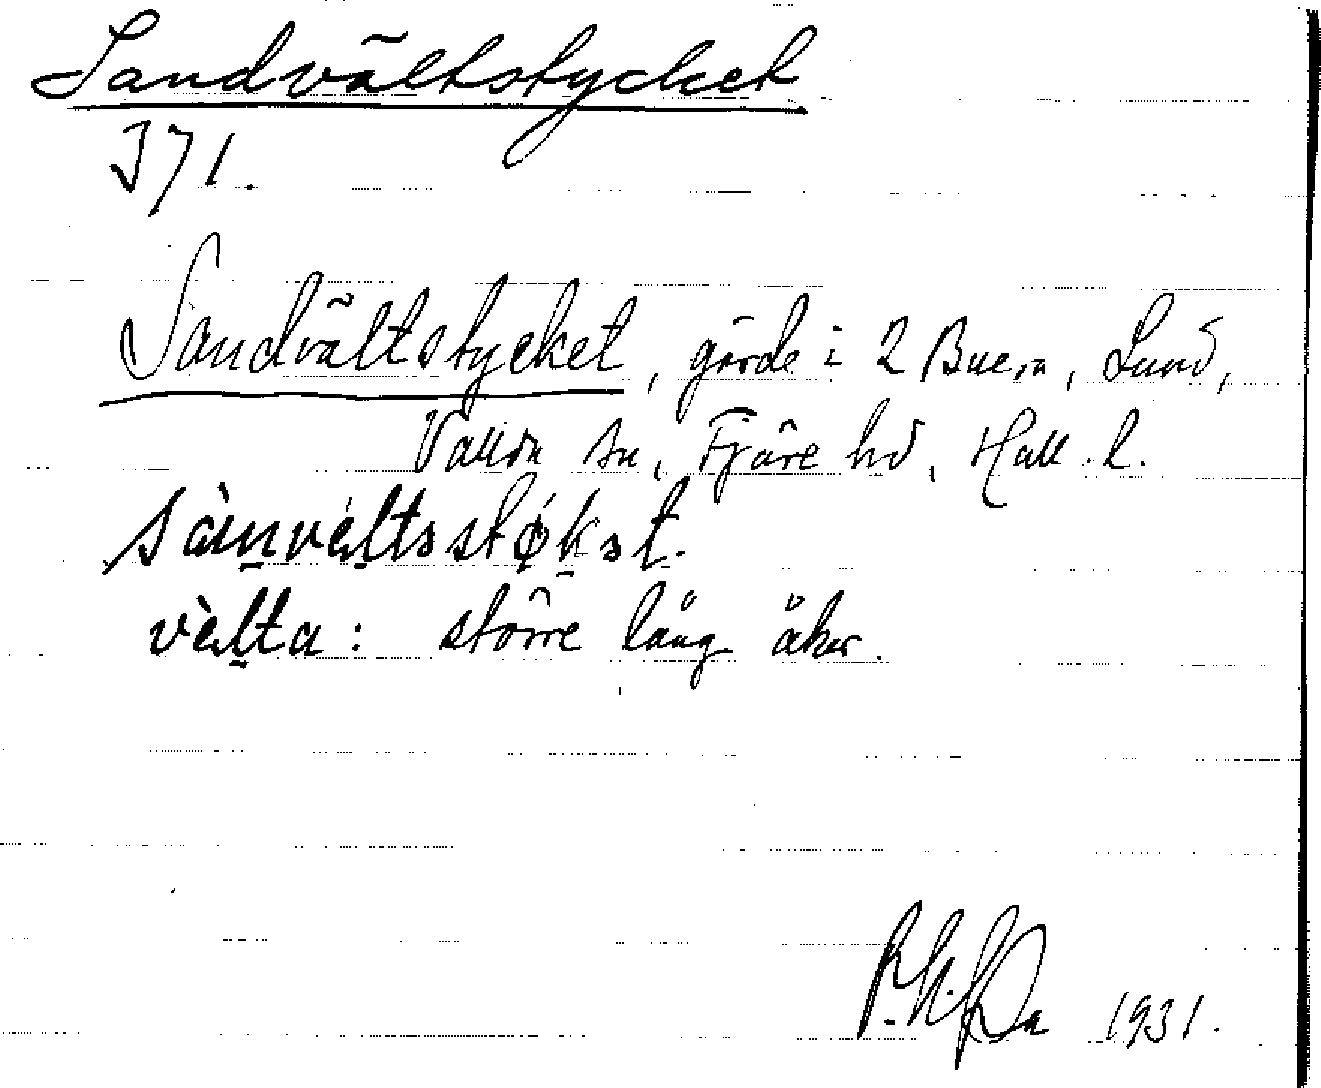 Sandvältstycket
I71.
Sandvältstycket, gärde i 2 Buera, Lund,
Vallda sn, Fjäre hd, Hall. l.
sàn̠vèl̠tsstøk̠ət.
vèl̠ta: större lång åker.
1931.